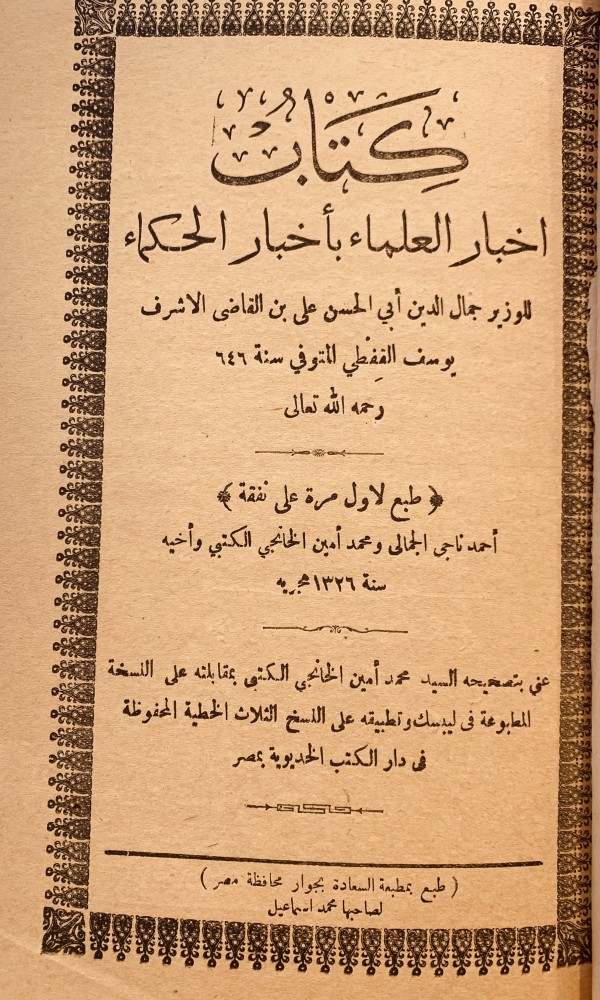 كِتَابُ
اخبار العلماء بأخبار الحكماء
للوزير جمال الدين أبي الحسن على بن القاضى الاشرف
يوسف القِفْطي المتوفي سنة ٦٤٦
رحمه الله تعالى
﴿ طبع لاول مرة على نفقة ﴾
أحمد ناجى الجمالى ومحمد أمين الخانجي الكتبي وأخيه
سنة ١٣٢٦ هجريه
عني بتصحيحه السيد محمد أمين الخانجي الكتبى بمقابلته على النسخة
المطبوعة فى ليبسك وتطبيقه على النسخ الثلاث الخطية المحفوظة
فى دار الكتب الخديوية بمصر
( طبع بمطبعة السعادة بجوار محافظة مصر )
لصاحبها محمد اسماعيل